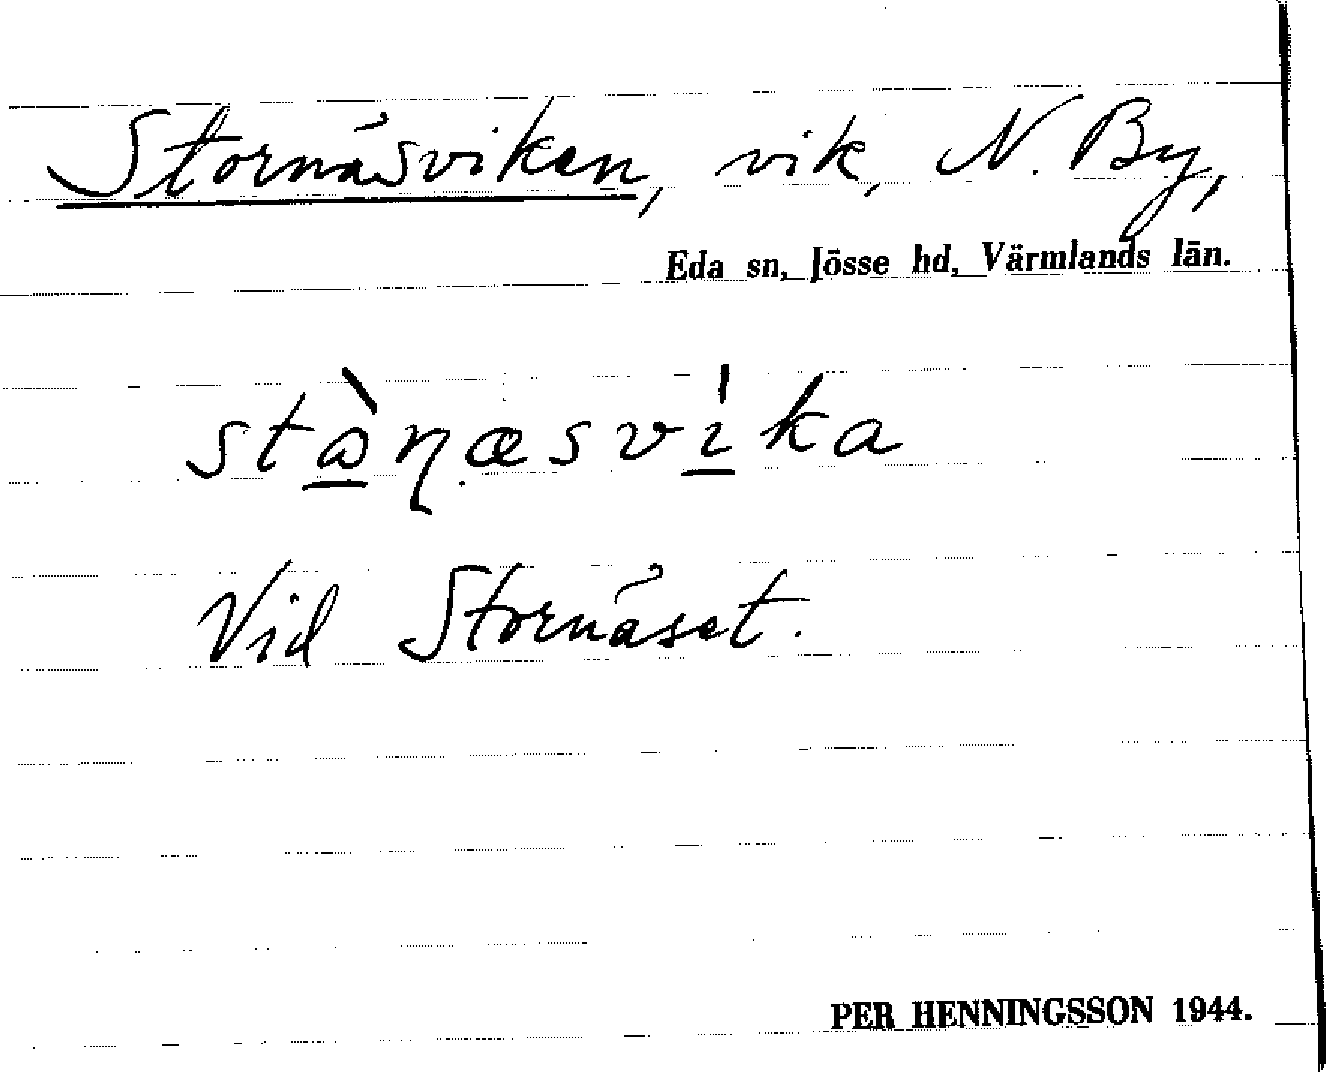 Stornäsviken, vik, N. By,
Eda sn, Jösse hd, Värmlands län.
stɷ̀ɳæsvíka
Vid Stornäset.
PER HENNINGSSON 1944.